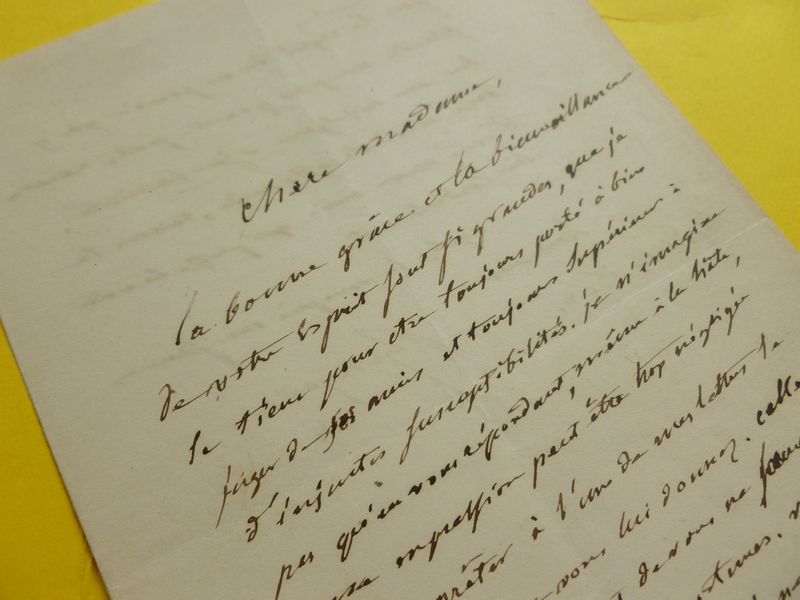 chere madame,
la bonne grâce et la bienveillance
de votre esprit sont si grandes, que je
le tiens pour etre toujours porté à bien
juger de ses amis et toujours supérieur à
d'injustes susceptibilités. je n'imagine
pas qu'en vous répondant, même à la hâte,
une expression peut être trop négligée
prêter à l'une de mes lettres le
vous lui donnez. celle
de vous ne